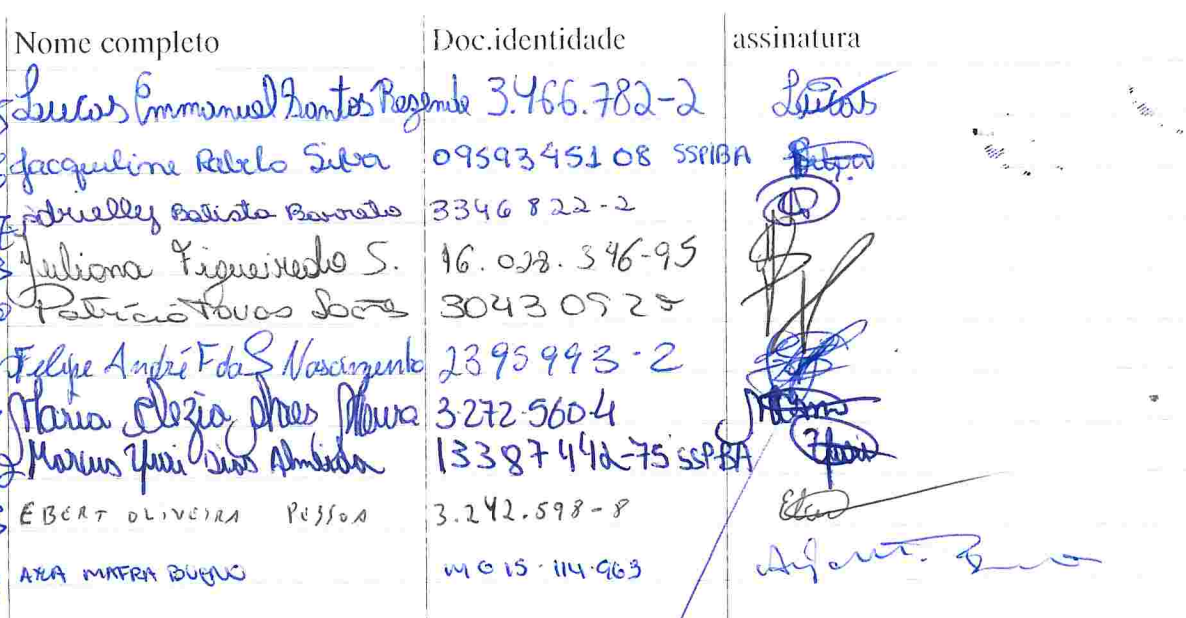 Nome completo Doc.identidade assinatura
Lucas Emmanuel Santos Rezende 3.466.782-2 Lucas
Jacqueline Rabelo Silva 0959345108 SSP/BA
Adrielly Batista Barreto 3346822-2
Juliana Figueiredo S. 16.028.346-95
Patrício 3043052
Felipe André F da S Nascimento 2395993-2
Maria Alves Moura 3.272.560-4
Marcus Yuri Dias Almeida 13387442-75 SSP BA Yuri
EBERT OLIVEIRA PESSOA 3.242.598-8
MAFRA BUENO MG 15.114.963